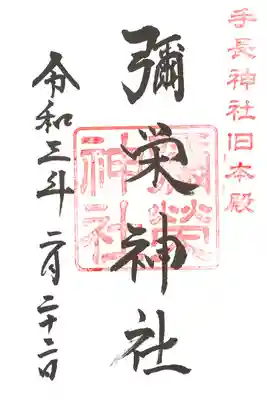 手長神社旧本殿
彌栄神社
彌榮神社
令和三年二月二十二日